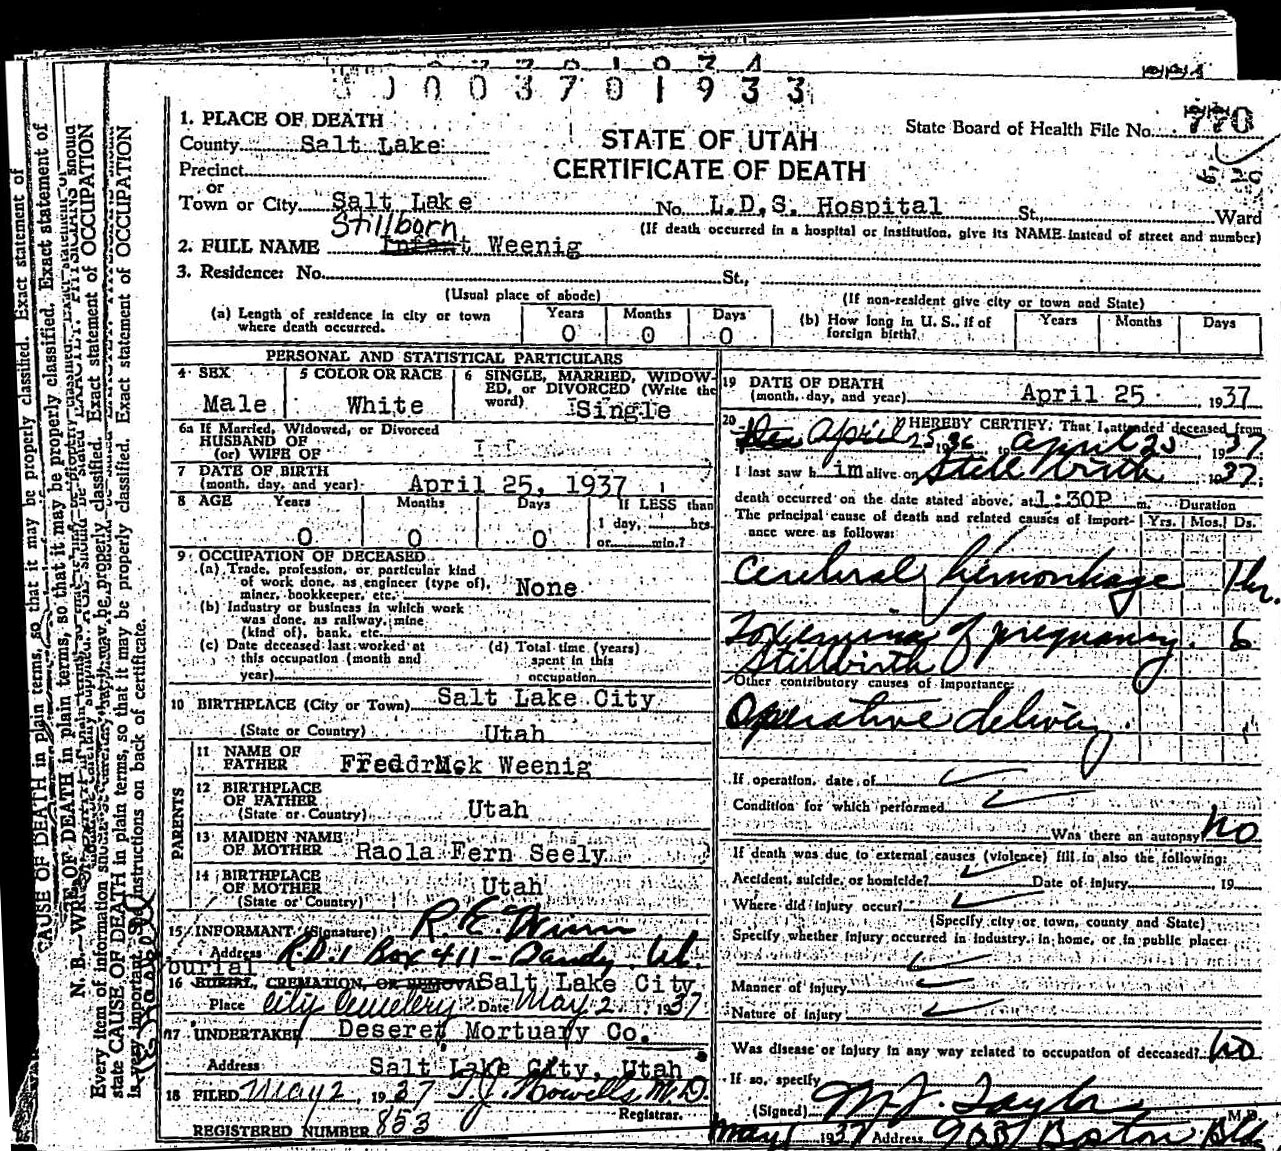 3 7 0 1 9 3 3
1. PLACE OF DEATH
County Salt Lake
STATE OF UTAH
CERTIFICATE OF DEATH
State Board of Health File No. 770
Precinct
or
Town or City Salt Lake No. L.D.S. Hospital St., Ward
(If death occurred in a hospital or institution, give its NAME instead of street and number)
Stillborn
2. FULL NAME Infant Weenig
3. Residence: No. St.,
(Usual place of abode) (If non-resident give city or town and State)
(a) Length of residence in city or town where death occurred. Years 0 Months 0 Days 0
(b) How long in U. S., if of foreign birth? Years Months Days
PERSONAL AND STATISTICAL PARTICULARS
4 SEX Male
5 COLOR OR RACE White
6 SINGLE, MARRIED, WIDOWED, or DIVORCED (Write the word) Single
6a If Married, Widowed, or Divorced
HUSBAND OF
(or) WIFE OF
7 DATE OF BIRTH
(month, day, and year) April 25, 1937
8 AGE Years 0 Months 0 Days 0 If LESS than
1 day, hrs.
or min.?
9 OCCUPATION OF DECEASED
(a) Trade, profession, or particular kind
of work done, as engineer (type of),
miner, bookkeeper, etc. None
(b) Industry or business in which work
was done, as railway, mine
(kind of), bank, etc.
(c) Date deceased last worked at
this occupation (month and
year)
(d) Total time (years)
spent in this
occupation
10 BIRTHPLACE (City or Town) Salt Lake City
(State or Country) Utah
PARENTS
11 NAME OF
FATHER Freddrick Weenig
12 BIRTHPLACE
OF FATHER
(State or Country) Utah
13 MAIDEN NAME
OF MOTHER Raola Fern Seely
14 BIRTHPLACE
OF MOTHER
(State or Country) Utah
15 INFORMANT (Signature) R. E. Winn
Address R.D.1 Box 411 - Sandy Ut.
burial
16 BURIAL, CREMATION, OR REMOVAL Salt Lake City
Place City Cemetery Date May 2 1937
17 UNDERTAKER Deseret Mortuary Co.
Address Salt Lake City, Utah
18 FILED May 2, 1937 T. J. Howells M.D.
Registrar.
REGISTERED NUMBER 853
19 DATE OF DEATH
(month, day, and year) April 25 1937
20 I HEREBY CERTIFY, That I attended deceased from
April 25, 36 to April 25, 1937
I last saw h im alive on Still birth 1937
death occurred on the date stated above, at 1:30P m. Duration
The principal cause of death and related causes of importance were as follows: Yrs. Mos. Ds.
Cerebral hemorrhage 1 hr.
Toxemia of pregnancy. 6
Stillbirth
Other contributory causes of importance:
Operative delivery
If operation, date of
Condition for which performed
Was there an autopsy No
If death was due to external causes (violence) fill in also the following:
Accident, suicide, or homicide? Date of injury 19
Where did injury occur?
(Specify city or town, county and State)
Specify whether injury occurred in industry, in home, or in public place:
Manner of injury
Nature of injury
Was disease or injury in any way related to occupation of deceased? No
If so, specify
(Signed) M. J. Taylor M.D.
May 1 1937 Address Boston Bldg
N. B.—WRITE
CAUSE OF DEATH in plain terms, so that it may be properly classified. Exact statement of
OF DEATH in plain terms, so that it may be properly classified. Exact statement of
Every item of information
PHYSICIANS should
state CAUSE OF DEATH in plain terms, so that it may be properly classified. Exact statement of OCCUPATION
is very important. See instructions on back of certificate.